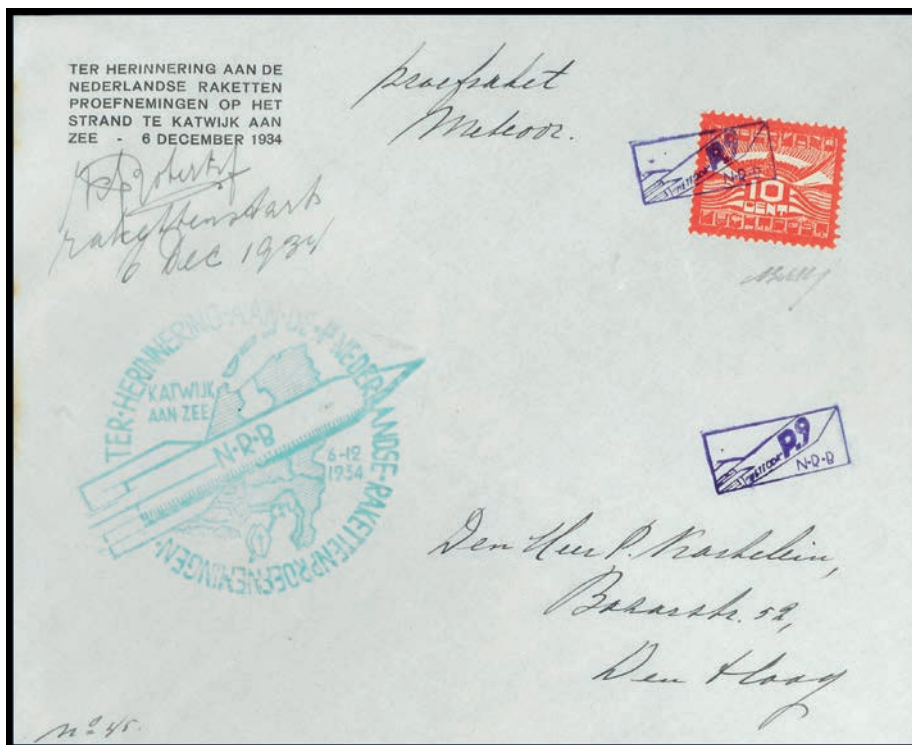 TER HERINNERING AAN DE
NEDERLANDSE RAKETTEN
PROEFNEMINGEN OP HET
STRAND TE KATWIJK AAN
ZEE - 6 DECEMBER 1934
proefraket
Meteoor.
rakettenstart
6 Dec 1934
METEOOR P.9
N·R·B
10
CENT
TER·HERINNERING·AAN·DE·1e·NEDERLANDSE·RAKETTENPROEFNEMINGEN·
KATWIJK
AAN·ZEE
N·R·B
6-12
1934
METEOOR P.9
N·R·B
Den Heer P. Kastelein,
52,
Den Haag
No 45.